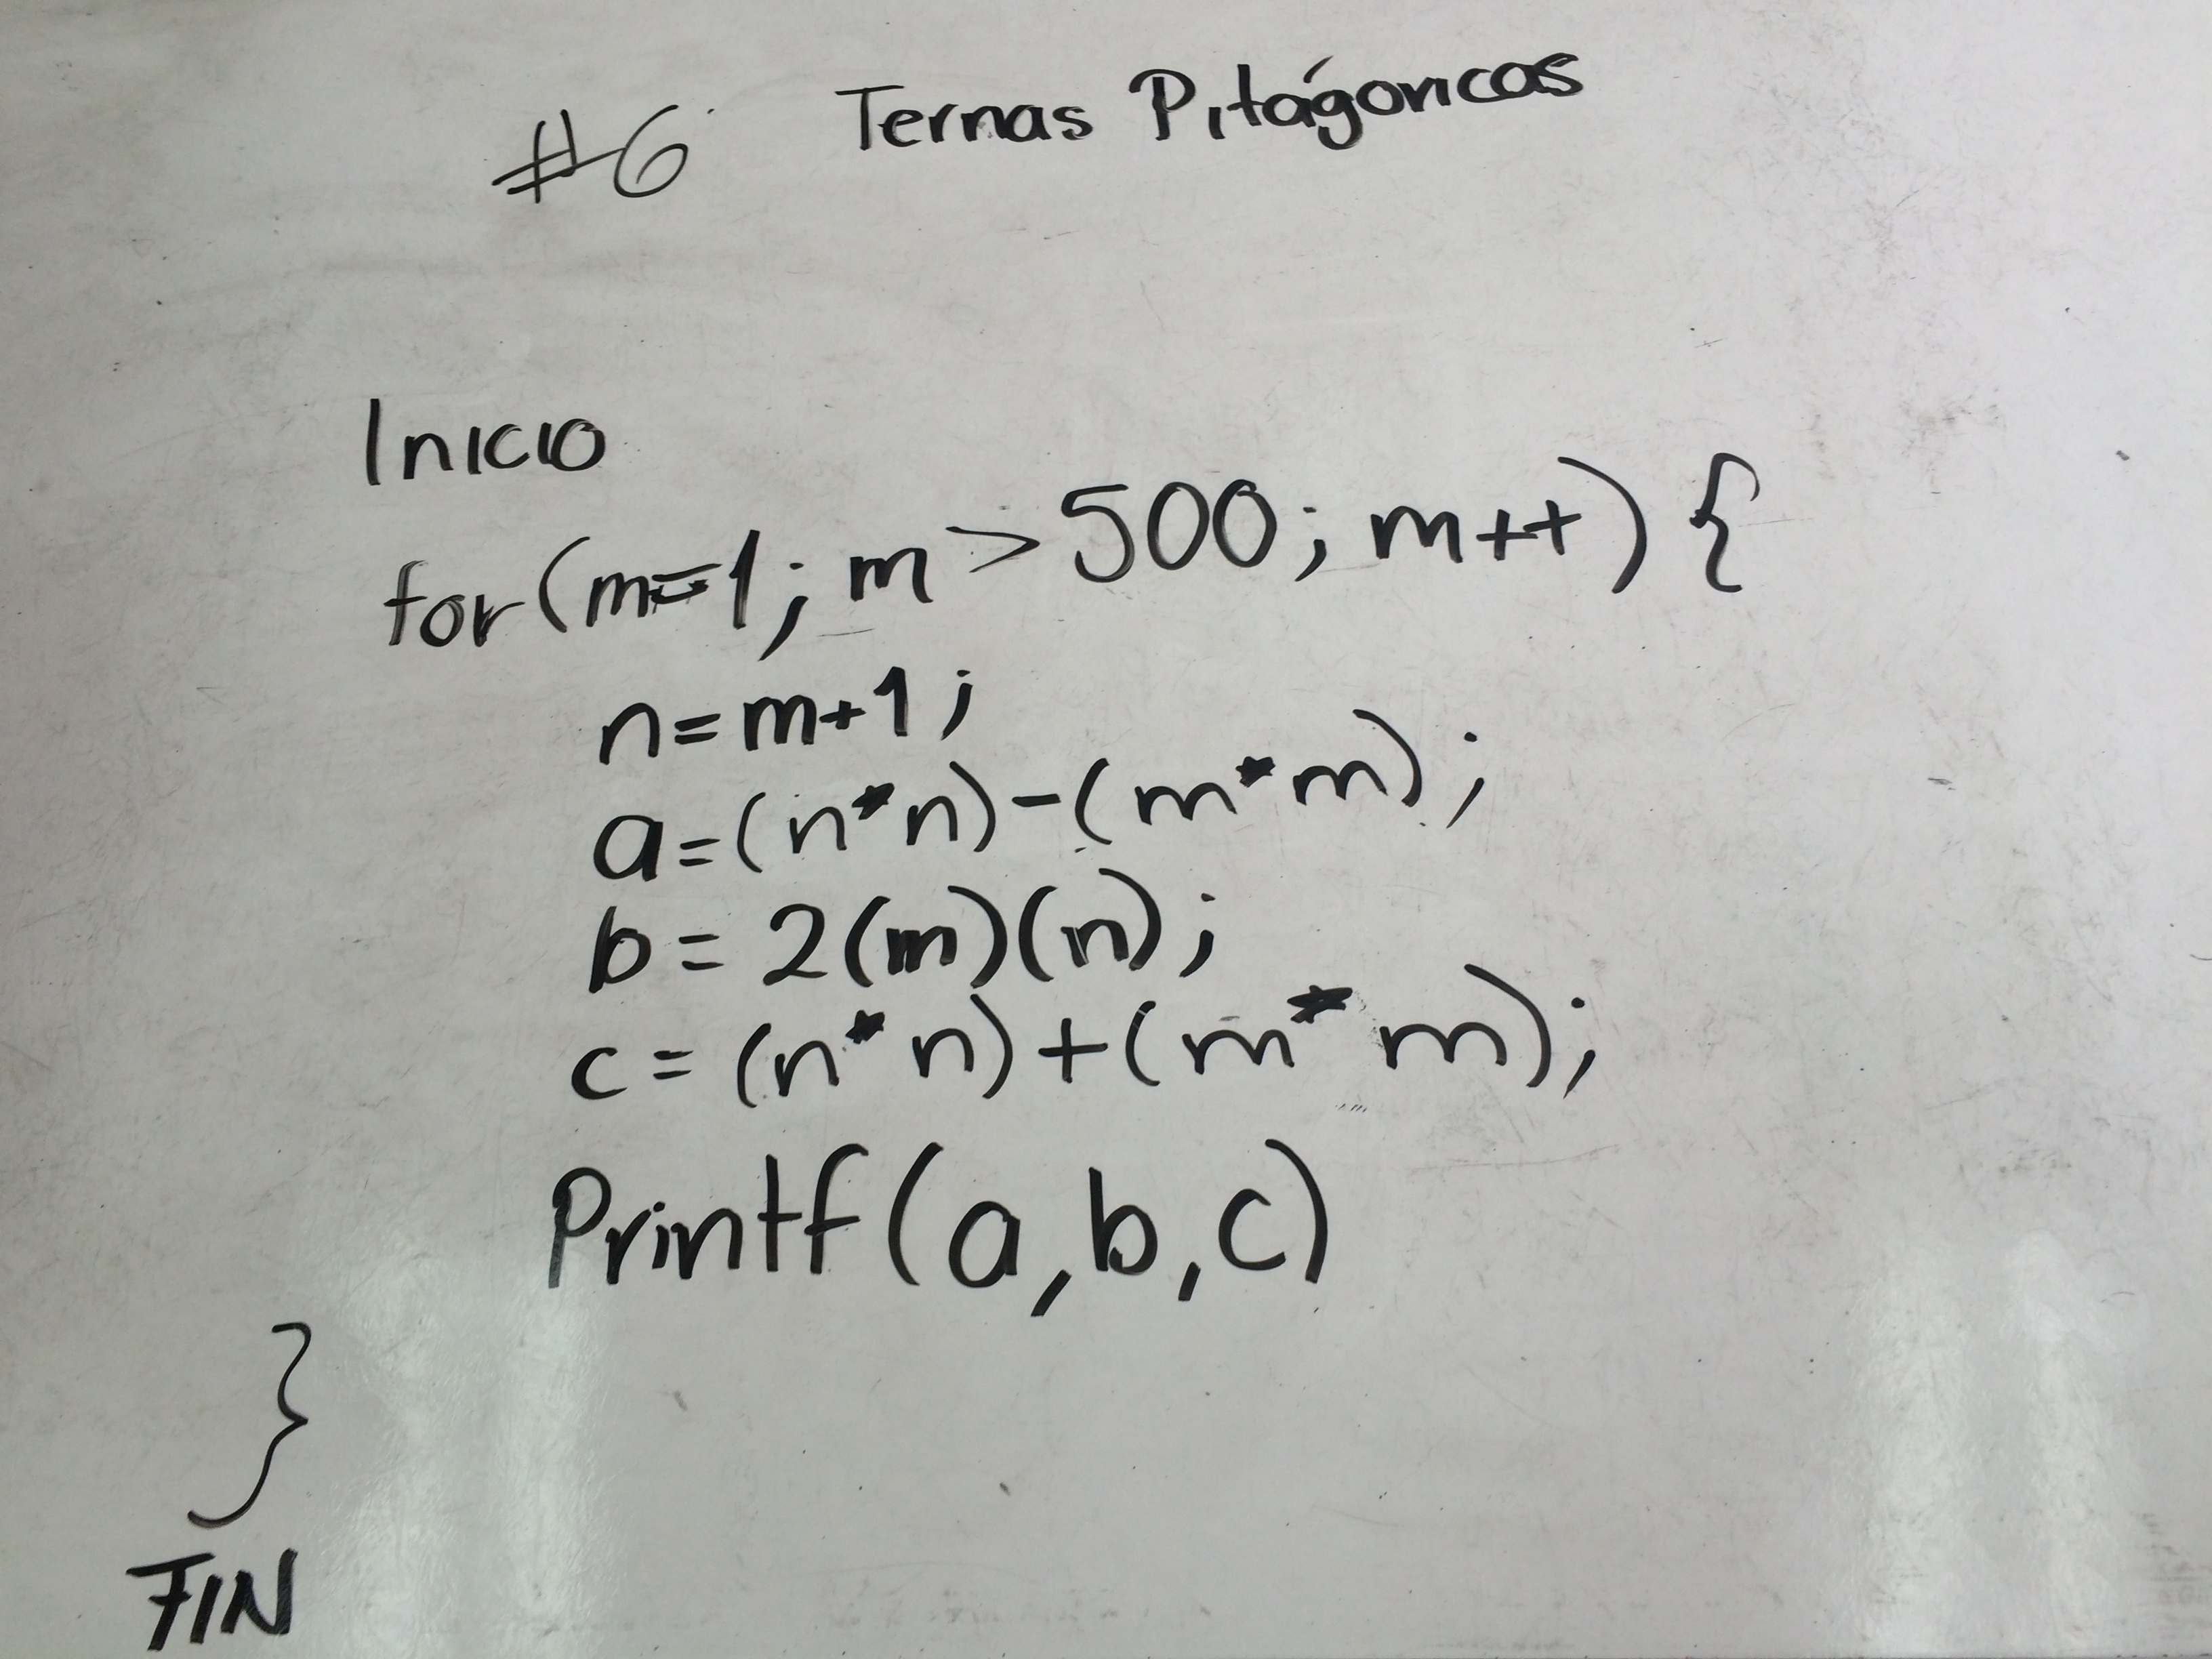 #6 Ternas Pitágoricas
Inicio
for(m=1; m>500; m++){
n=m+1;
a=(n*n)-(m*m);
b=2(m)(n);
c=(n*n)+(m*m);
Printf(a,b,c)
}
FIN